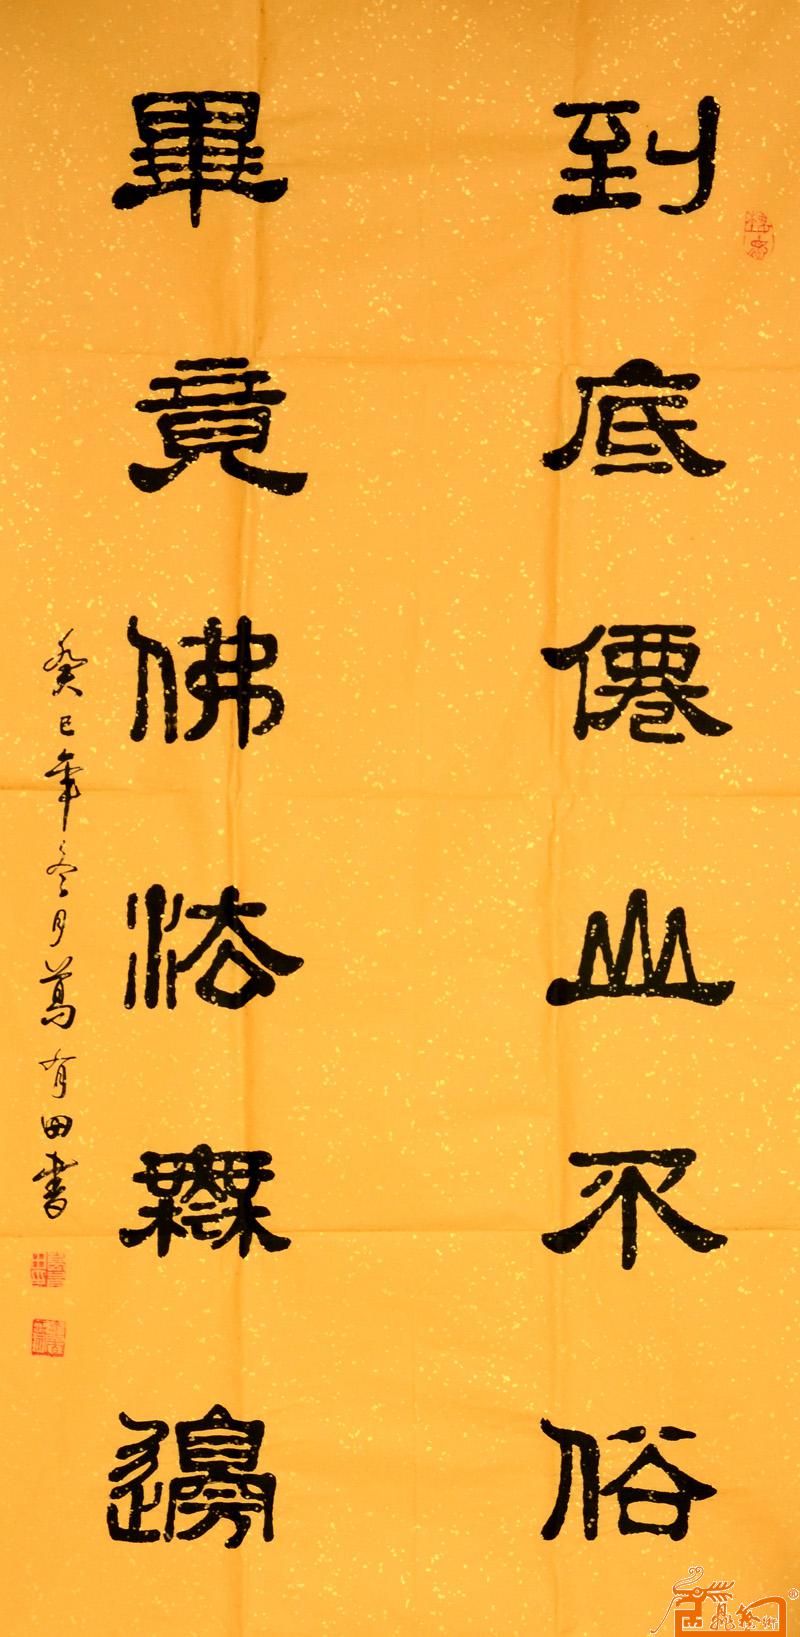 到底僊山不俗
畢竟佛法無邊
癸巳年冬月葛有田書